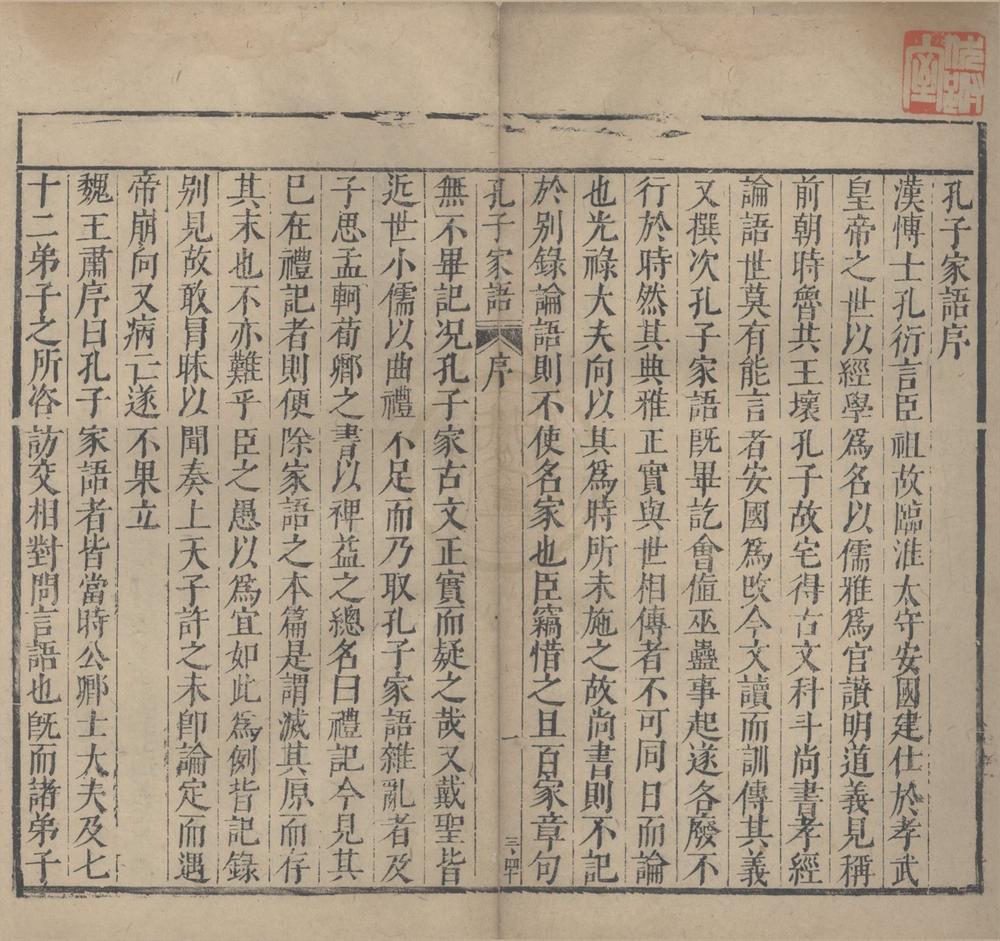 孔子家語序
漢博士孔衍言臣祖故臨淮太守安國建仕於孝武
皇帝之世以經學爲名以儒雅爲官讃明道義見稱
前朝時魯共王壞孔子故宅得古文科斗尚書孝經
論語世莫有能言者安國爲攺今文讀而訓傳其義
又撰次孔子家語既畢訖會值巫蠱事起遂各廢不
行於時然其典雅正實與世相傳者不可同日而論
也光祿大夫向以其爲時所未施之故尚書則不記
於別錄論語則不使名家也臣竊惜之且百家章句
孔子家語 序 一 三、四十
無不畢記况孔子家古文正實而疑之哉又戴聖皆
近世小儒以曲禮不足而乃取孔子家語雜亂者及
子思孟軻荀卿之書以裨益之總名曰禮記今見其
已在禮記者則便除家語之本篇是謂滅其原而存
其末也不亦難乎臣之愚以爲宜如此爲例皆記錄
別見故敢冒昧以聞奏上天子許之未卽論定而遇
帝崩向又病亡遂不果立
魏王肅序曰孔子家語者皆當時公卿士大夫及七
十二弟子之所咨訪交相對問言語也旣而諸弟子